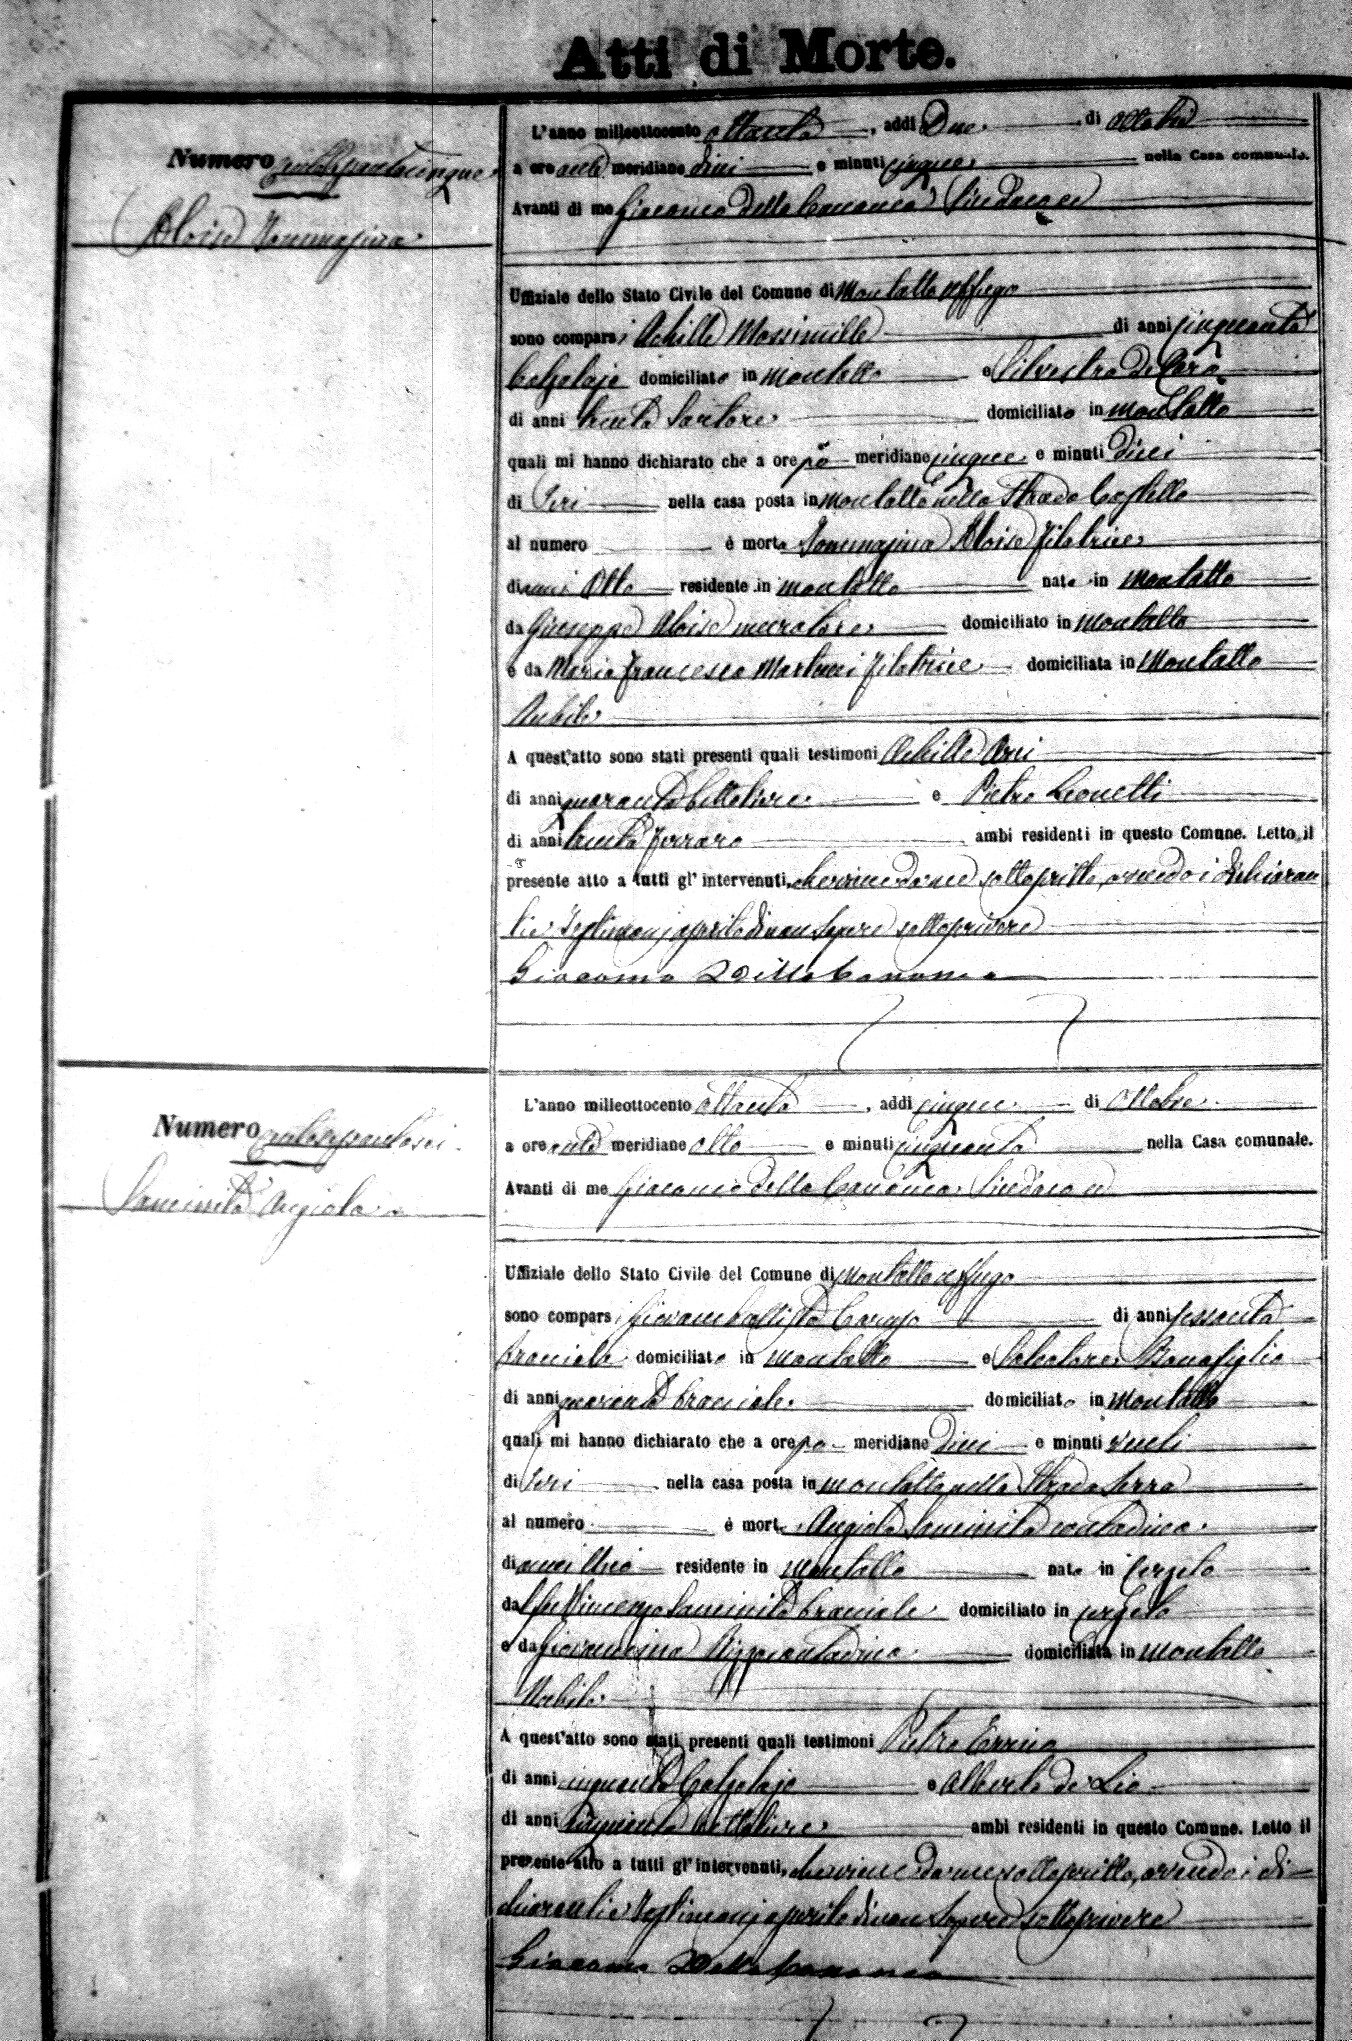 Atti di Morte.
Numero
Aloise Tommasina
L'anno milleottocento ottanta, addì Due di Ottobre
a ore anti meridiane dieci e minuti cinque nella Casa comunale.
Avanti di me Giacomo Della Cananea Sindaco ed
Uffiziale dello Stato Civile del Comune di Montalto Uffugo
sono comparsi Achille Massimilla di anni cinquanta
Calzolajo domiciliato in Montalto e Silvestro De Caro
di anni trenta Sartore domiciliato in Montalto
quali mi hanno dichiarato che a ore po meridiane cinque e minuti dieci
di Jeri nella casa posta in Montalto nella Strada Castello
al numero è morta Tommasina Aloise filatrice
di anni Otto residente in Montalto nata in Montalto
da Giuseppe Aloise muratore domiciliato in Montalto
e da Maria Francesca Martucci filatrice domiciliata in Montalto
Nubile
A quest'atto sono stati presenti quali testimoni Achille
di anni quaranta bettoliere e Pietro Leonetti
di anni trenta Ferraro ambi residenti in questo Comune. Letto il
presente atto a tutti gl'intervenuti, che viene da me sottoscritto, avendo i dichiaran
ti e Testimonj asserito di non sapere sottoscrivere
Giacomo Della Cananea
Numero
Sancineto Angiola
L'anno milleottocento ottanta, addì cinque di Ottobre
a ore anti meridiane otto e minuti cinquanta nella Casa comunale.
Avanti di me Giacomo Della Cananea Sindaco ed
Uffiziale dello Stato Civile del Comune di Montalto Uffugo
sono comparsi Giovambattista di anni sessanta
bracciale domiciliato in Montalto e Salvatore Bonofiglio
di anni quaranta bracciale domiciliato in Montalto
quali mi hanno dichiarato che a ore po meridiane dieci e minuti venti
di Jeri nella casa posta in Montalto nella Strada Serra
al numero è morta Angiola Sancineto contadina
di anni residente in Montalto nata in
da fu Vincenzo Sancineto bracciale domiciliato in
e da Giovannina Rizzo contadina domiciliata in Montalto
Nubile
A quest'atto sono stati presenti quali testimoni Pietro Errico
di anni cinquanta Calzolajo e Alberto de Lio
di anni cinquanta bettoliere ambi residenti in questo Comune. Letto il
presente atto a tutti gl'intervenuti, che viene da me sottoscritto, avendo i di
chiaranti e Testimonj asserito di non sapere sottoscrivere
Giacomo Della Cananea